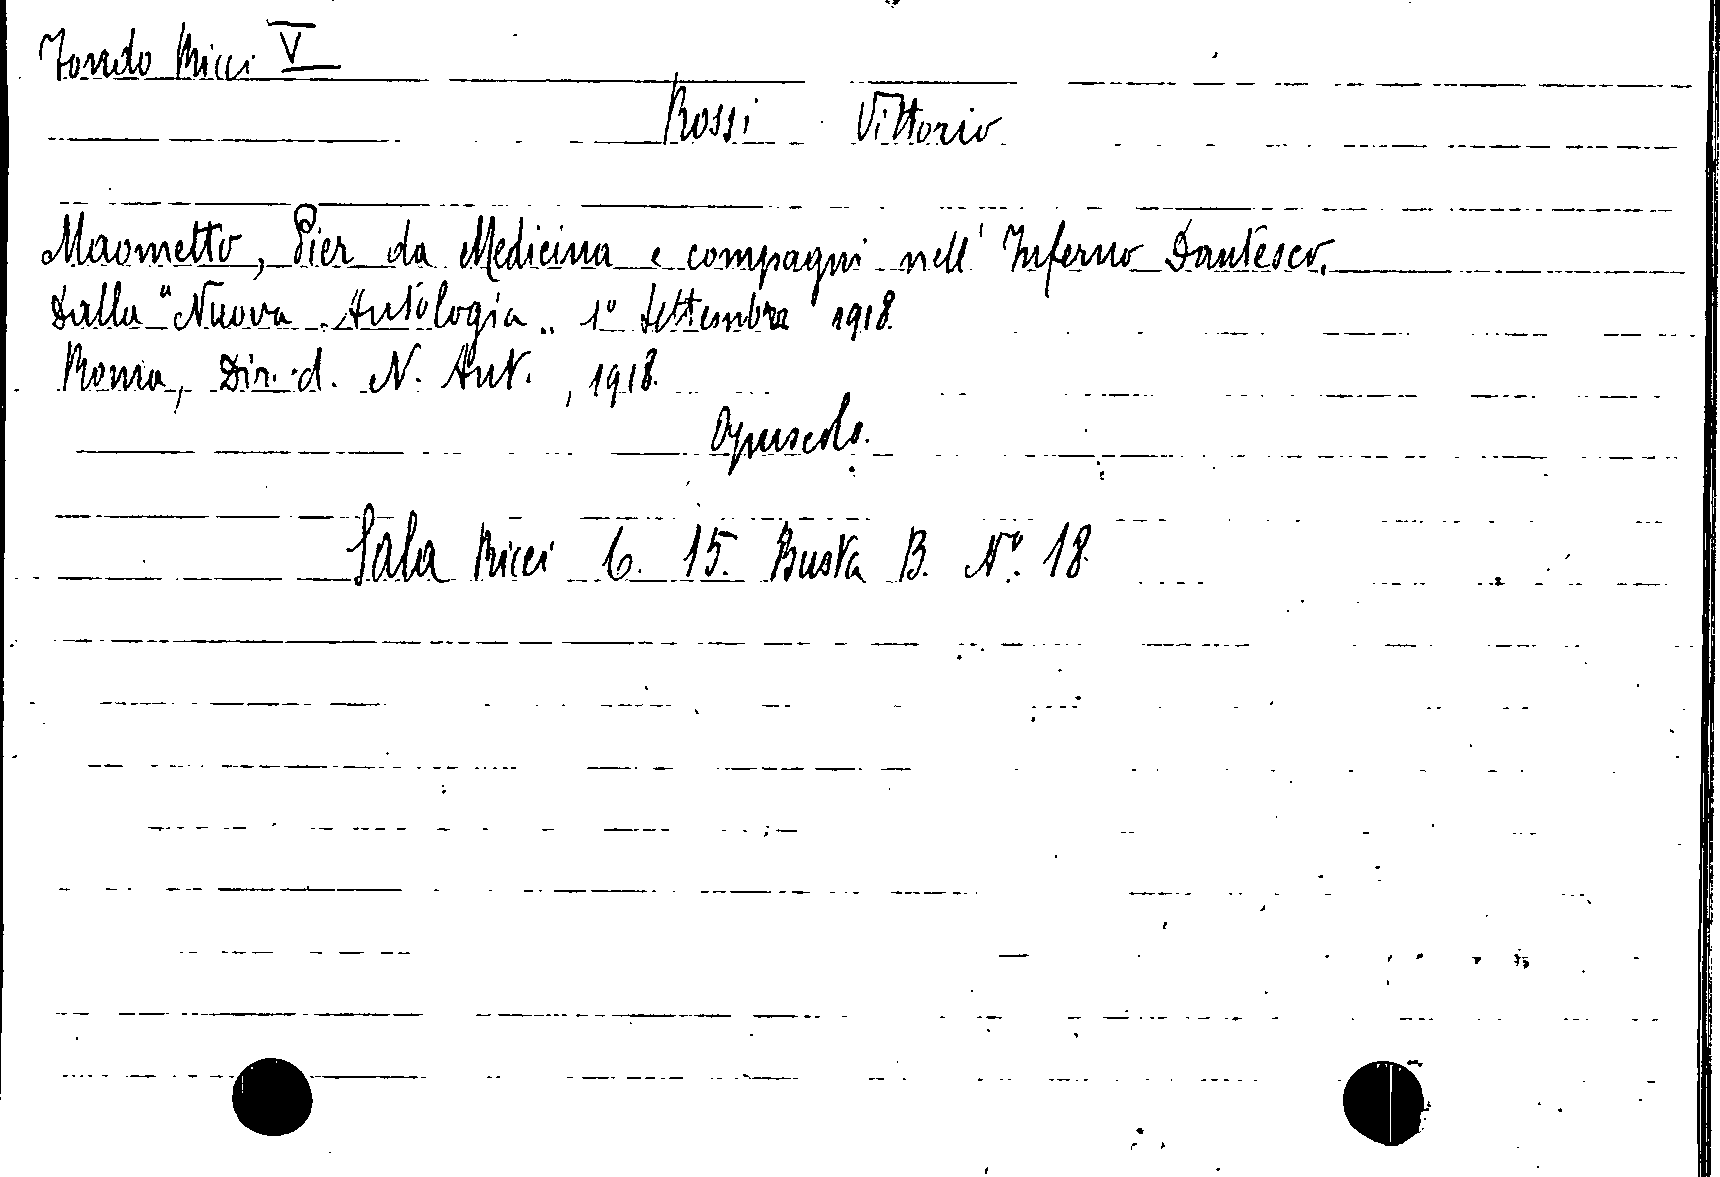 Fondo Ricci V
Rossi Vittorio
Maometto, Pier da Medicina e compagni nell' Inferno Dantesco.
Dalla "Nuova Antologia„ 1º Settembre 1918.
Roma, Dir. d. N. Ant., 1918.
Opuscolo.
Sala Ricci 6. 15. Busta B. Nº. 18.